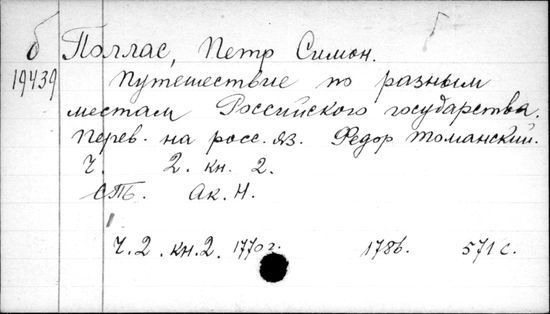 б Паллас, Петр Симон.
19439 Путешествие по разным
местам Российского государства.
Перев. на росс. яз. Федор Томанский.
Ч. 2. кн. 2.
СПБ. Ак. Н.
Ч. 2. кн. 2. 1770 г. 1786. 571 с.